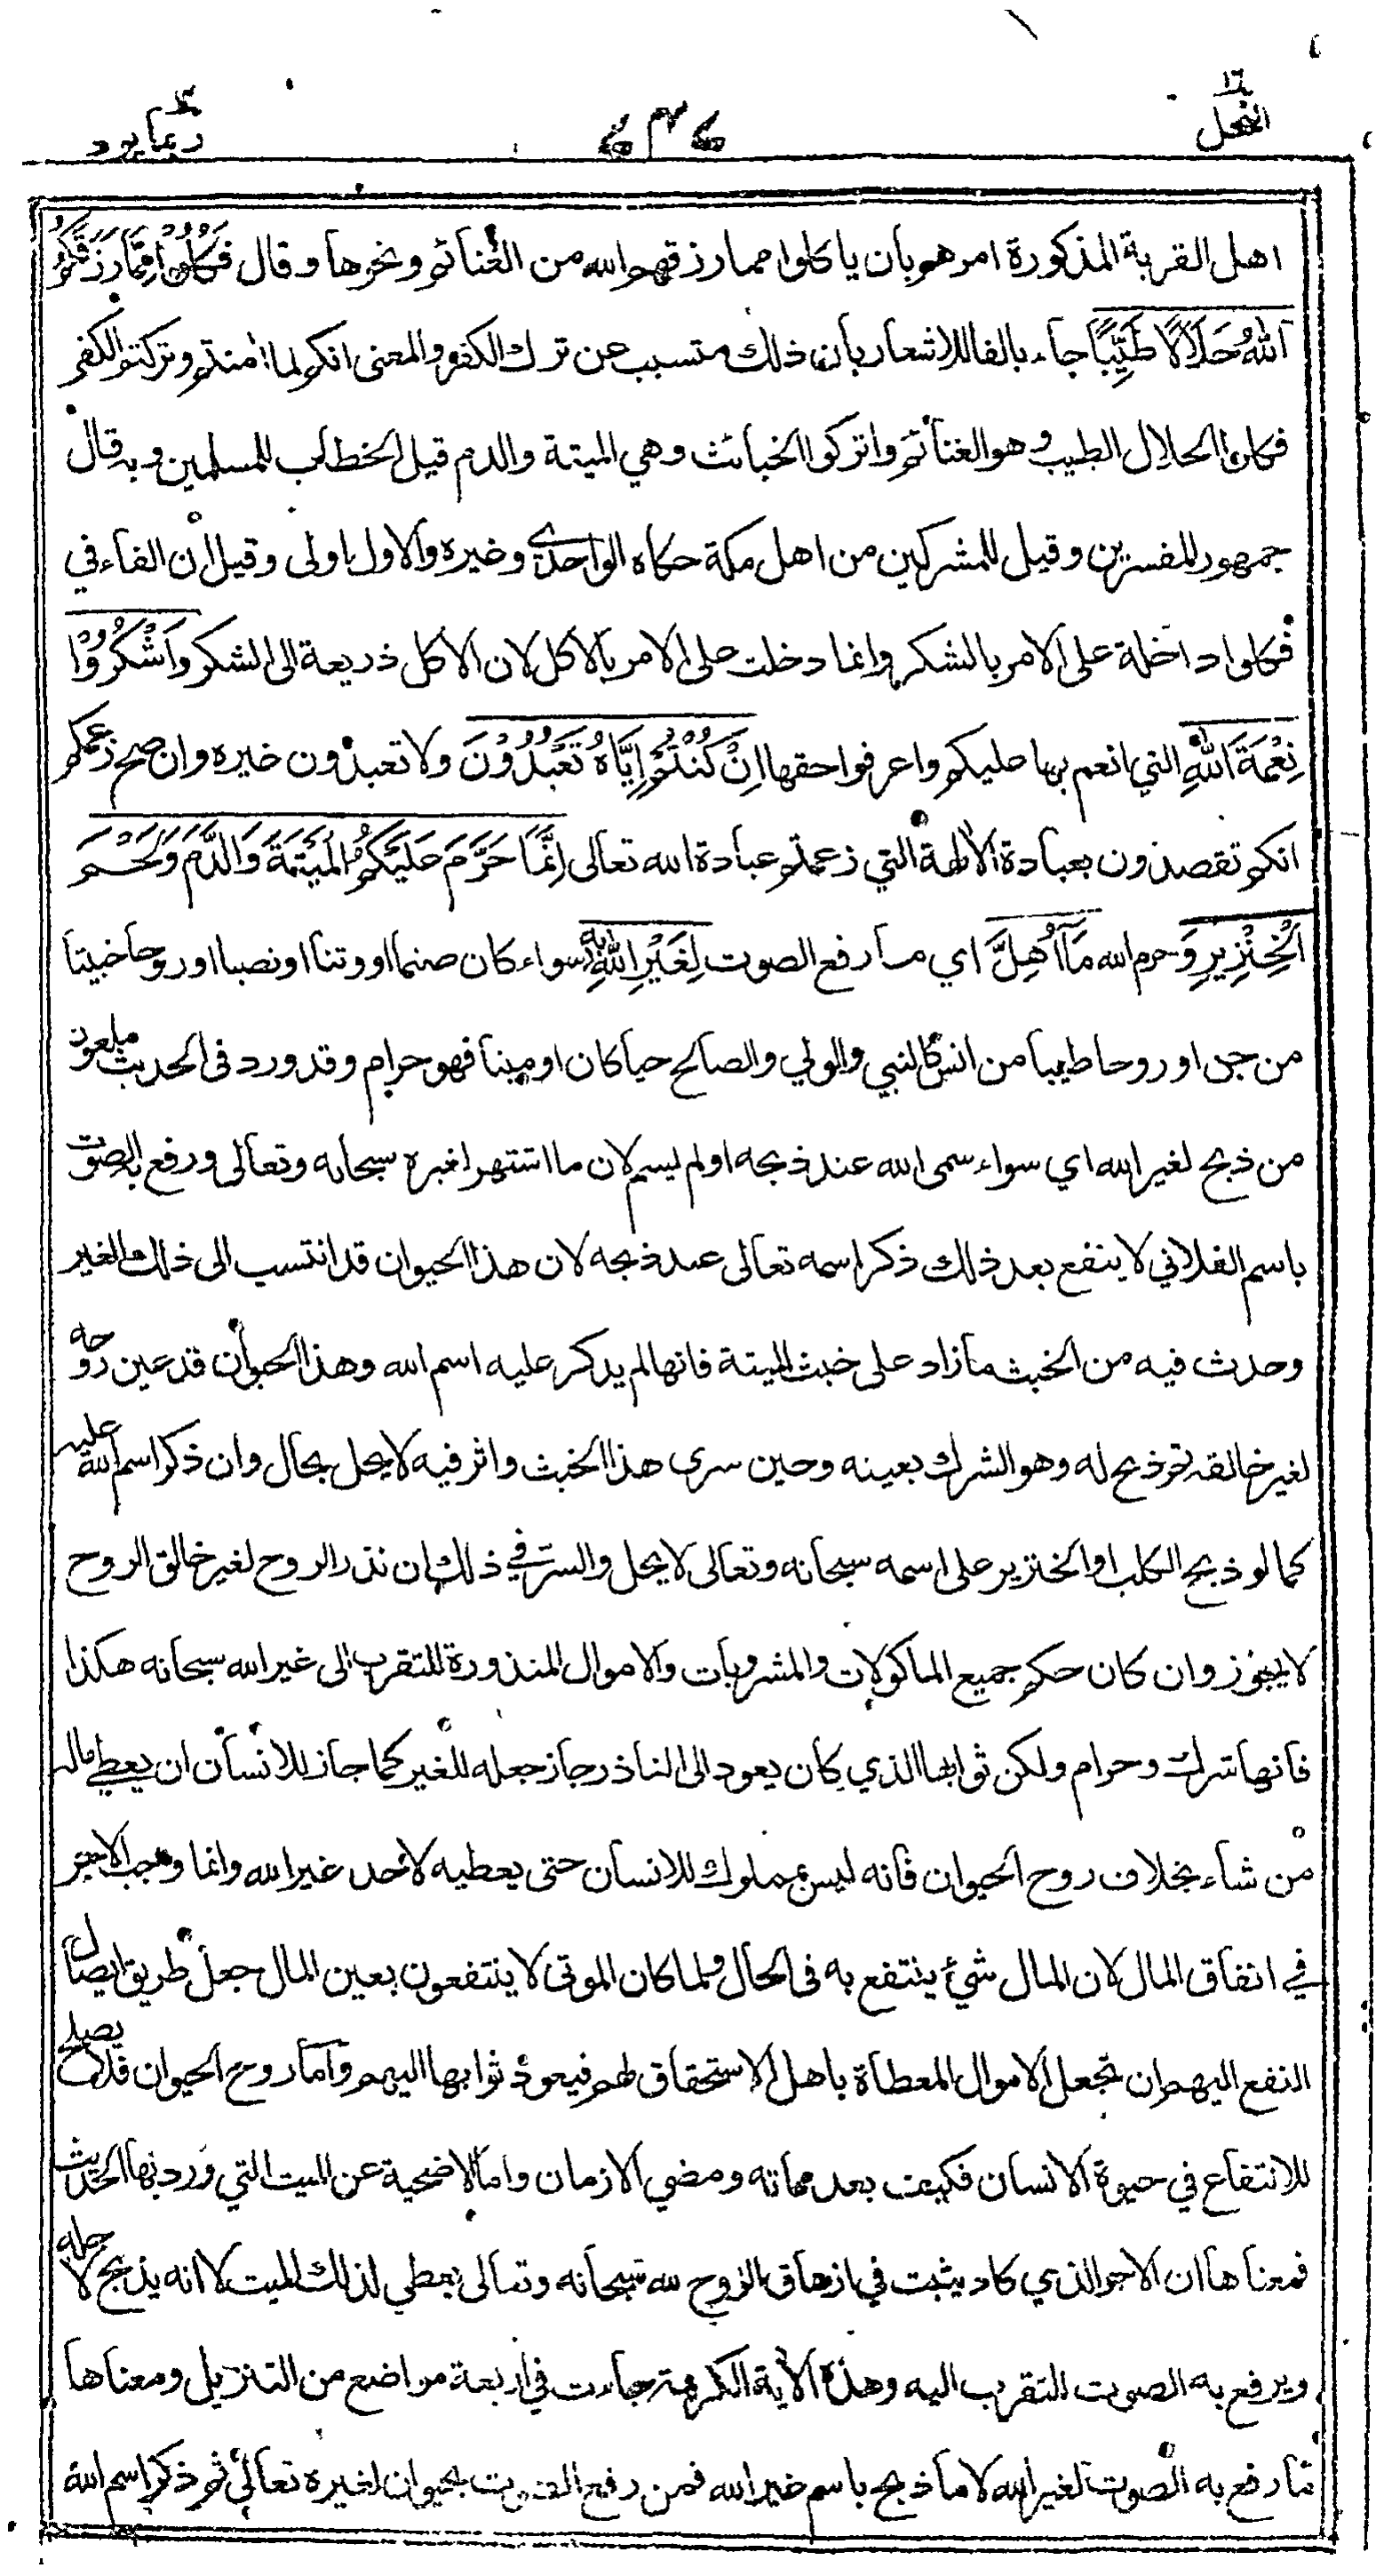 النحل ١٦
ربما ١٤
اهل القرية المذكورة امرهم بان ياكلوا مما رزقهم الله من الغنائم ونحوها وقال فَكُلُوْا مِمَّا رَزَقَكُمُ
اللهُ حَلَالًا طَيِّبًا جاء بالفاء للاشعار بان ذلك متسبب عن ترك الكفر والمعنى انكم لما اٰمنتم وتركتم الكفر
فكلوا الحلال الطيب وهو الغنائم واتركوا الخبائث وهي الميتة والدم قيل الخطاب للمسلمين وبه قال
جمهور المفسرين وقيل للمشركين من اهل مكة حكاه الواحدي وغيره والاول اولى وقيل ان الفاء في
فكلوا داخلة على الامر بالشكر وانما دخلت على الامر بالاكل لان الاكل ذريعة الى الشكر وَاشْكُرُوْا
نِعْمَةَ اللهِ التي انعم بها عليكم واعرفوا حقها اِنْ كُنْتُمْ اِيَّاهُ تَعْبُدُوْنَ ولا تعبدون غيره وان صح زعمكم
انكم تقصدون بعبادة الاٰلهة التي زعمتم عبادة الله تعالى اِنَّمَا حَرَّمَ عَلَيْكُمُ الْمَيْتَةَ وَالدَّمَ وَلَحْمَ
الْخِنْزِيرِ وَحرم الله مَآ اُهِلَّ اي ما رفع الصوت لِغَيْرِ اللهِ بِه سواء كان صنما او وثنا او نصبا او روحا خبيثا
من جن او روحا طيبا من انس كالنبي والولي والصالح حيا كان او ميتا فهو حرام وقد ورد فى الحديث ملعون
من ذبح لغير الله اي سواء سمى الله عند ذبحه او لم يسم لان ما اشتهر لغيره سبحانه وتعالى ورفع به الصوت
باسم الفلاني لا ينفع بعد ذلك ذكر اسمه تعالى عند ذبحه لان هذا الحيوان قد انتسب الى ذلك الغير
وحدث فيه من الخبث ما زاد على خبث الميتة فانها لم يذكر عليه اسم الله وهذا الحيوان قد عين روحه
لغير خالقه ثم ذبح له وهو الشرك بعينه وحين سرى هذا الخبث واثر فيه لا يحل بحال وان ذكر اسم الله عليه
كما لو ذبح الكلب او الخنزير على اسمه سبحانه وتعالى لا يحل والسر في ذلك ان نذر الروح لغير خالق الروح
لا يجوز وان كان حكم جميع الماكولات والمشروبات والاموال المنذورة للتقرب الى غير الله سبحانه هكذا
فانها شرك وحرام ولكن ثوابها الذي كان يعود الى الناذر جاز جعله للغير كما جاز للانسان ان يعطي ماله
من شاء بخلاف روح الحيوان فانه ليس بمملوك للانسان حتى يعطيه لاحد غير الله وانما وجب الاجر
في انفاق المال لان المال شيء ينتفع به فى الحال ولما كان الموتى لا ينتفعون بعين المال جعل طريق ايصال
النفع اليهم ان تجعل الاموال المعطاة باهل الاستحقاق لهم فيعود ثوابها اليهم واما روح الحيوان فلا يصلح
للانتفاع في حيوة الانسان فكيف بعد مماته ومضي الازمان واما الاضحية عن الميت التي ورد بها الحديث
فمعناها ان الاجر الذي كاد يثبت في ازهاق الروح لله سبحانه وتعالى يعطي لذلك الميت لا انه يذبح لاجله
ويرفع به الصوت للتقرب اليه وهذه الاٰية الكريمة جاءت في اربعة مواضع من التنزيل ومعناها
ما رفع به الصوت لغير الله لا ما ذبح باسم غير الله فمن رفع الصوت بحيوان لغيره تعالى ثم ذكر اسم الله